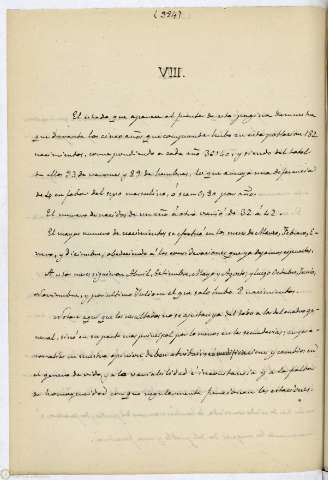 (994)
VIII.
El estado que aparece al frente de esta pagina demuestra
que durante los cinco años que comprende hubo en esta poblacion 182
nacimientos, correspondiendo a cada año 36'40; y siendo del total
de ellos 93 de varones y 89 de hembras, lo que arroja una diferencia
de 4 en favor del sexo masculino, ó sean 0,80 por año.
El numero de nacidos de un año á otro varió de 32 á 42.
El mayor numero de nacimientos se efectuó en los meses de Marzo, Febrero, E-
nero, y Diciembre, obedeciendo á las consideraciones que ya dejamos expuestas.
A estos meses siguieron Abril, Setiembre, Mayo y Agosto; y luego Octubre, Junio,
Noviembre, y por ultimo Julio en el que solo hubo 2 nacimientos.
aqui que los resultados no se ajustan ya del todo a los del cuadro ge-
neral, sino en su parte mas principal por lo menos en los secundarios; cuya a-
nomalia en nuestra opinion debe atribuirse á modificaciones y cambios en
el genero de vida, y a la variabilidad é inconstancia y a la falta
de homogeneidad con que regularmente se presentan las estaciones.